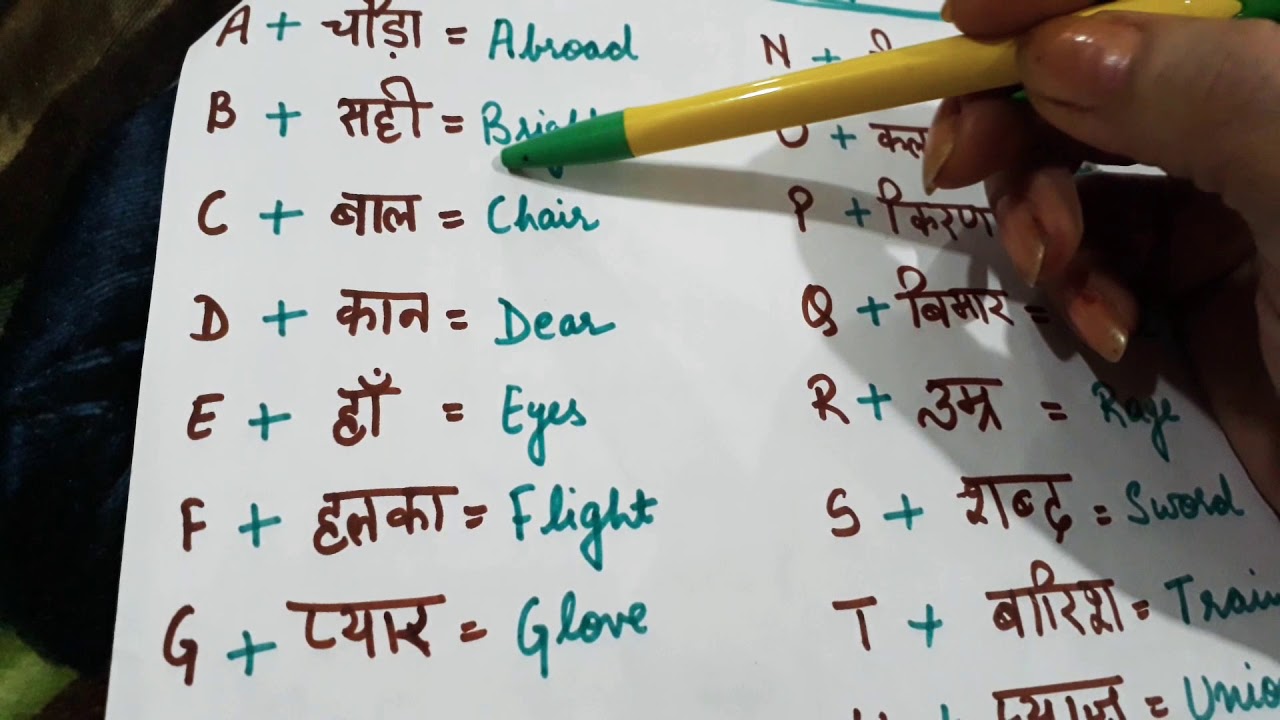 A + चौड़ा = Abroad
B + सही =
C + बाल = Chair
D + कान = Dear
E + हाँ = Eyes
F + हलका = Flight
G + प्यार = Glove
N +
+
P + किरण
Q + बिमार =
R + उम्र = Rage
S + शब्द = Sword
T + बारिश =
+ प्याज =